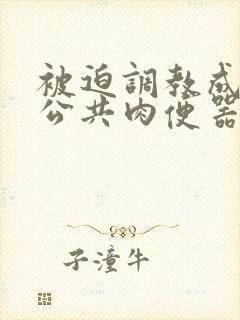 被迫調教成
公共肉便器
子潼牛